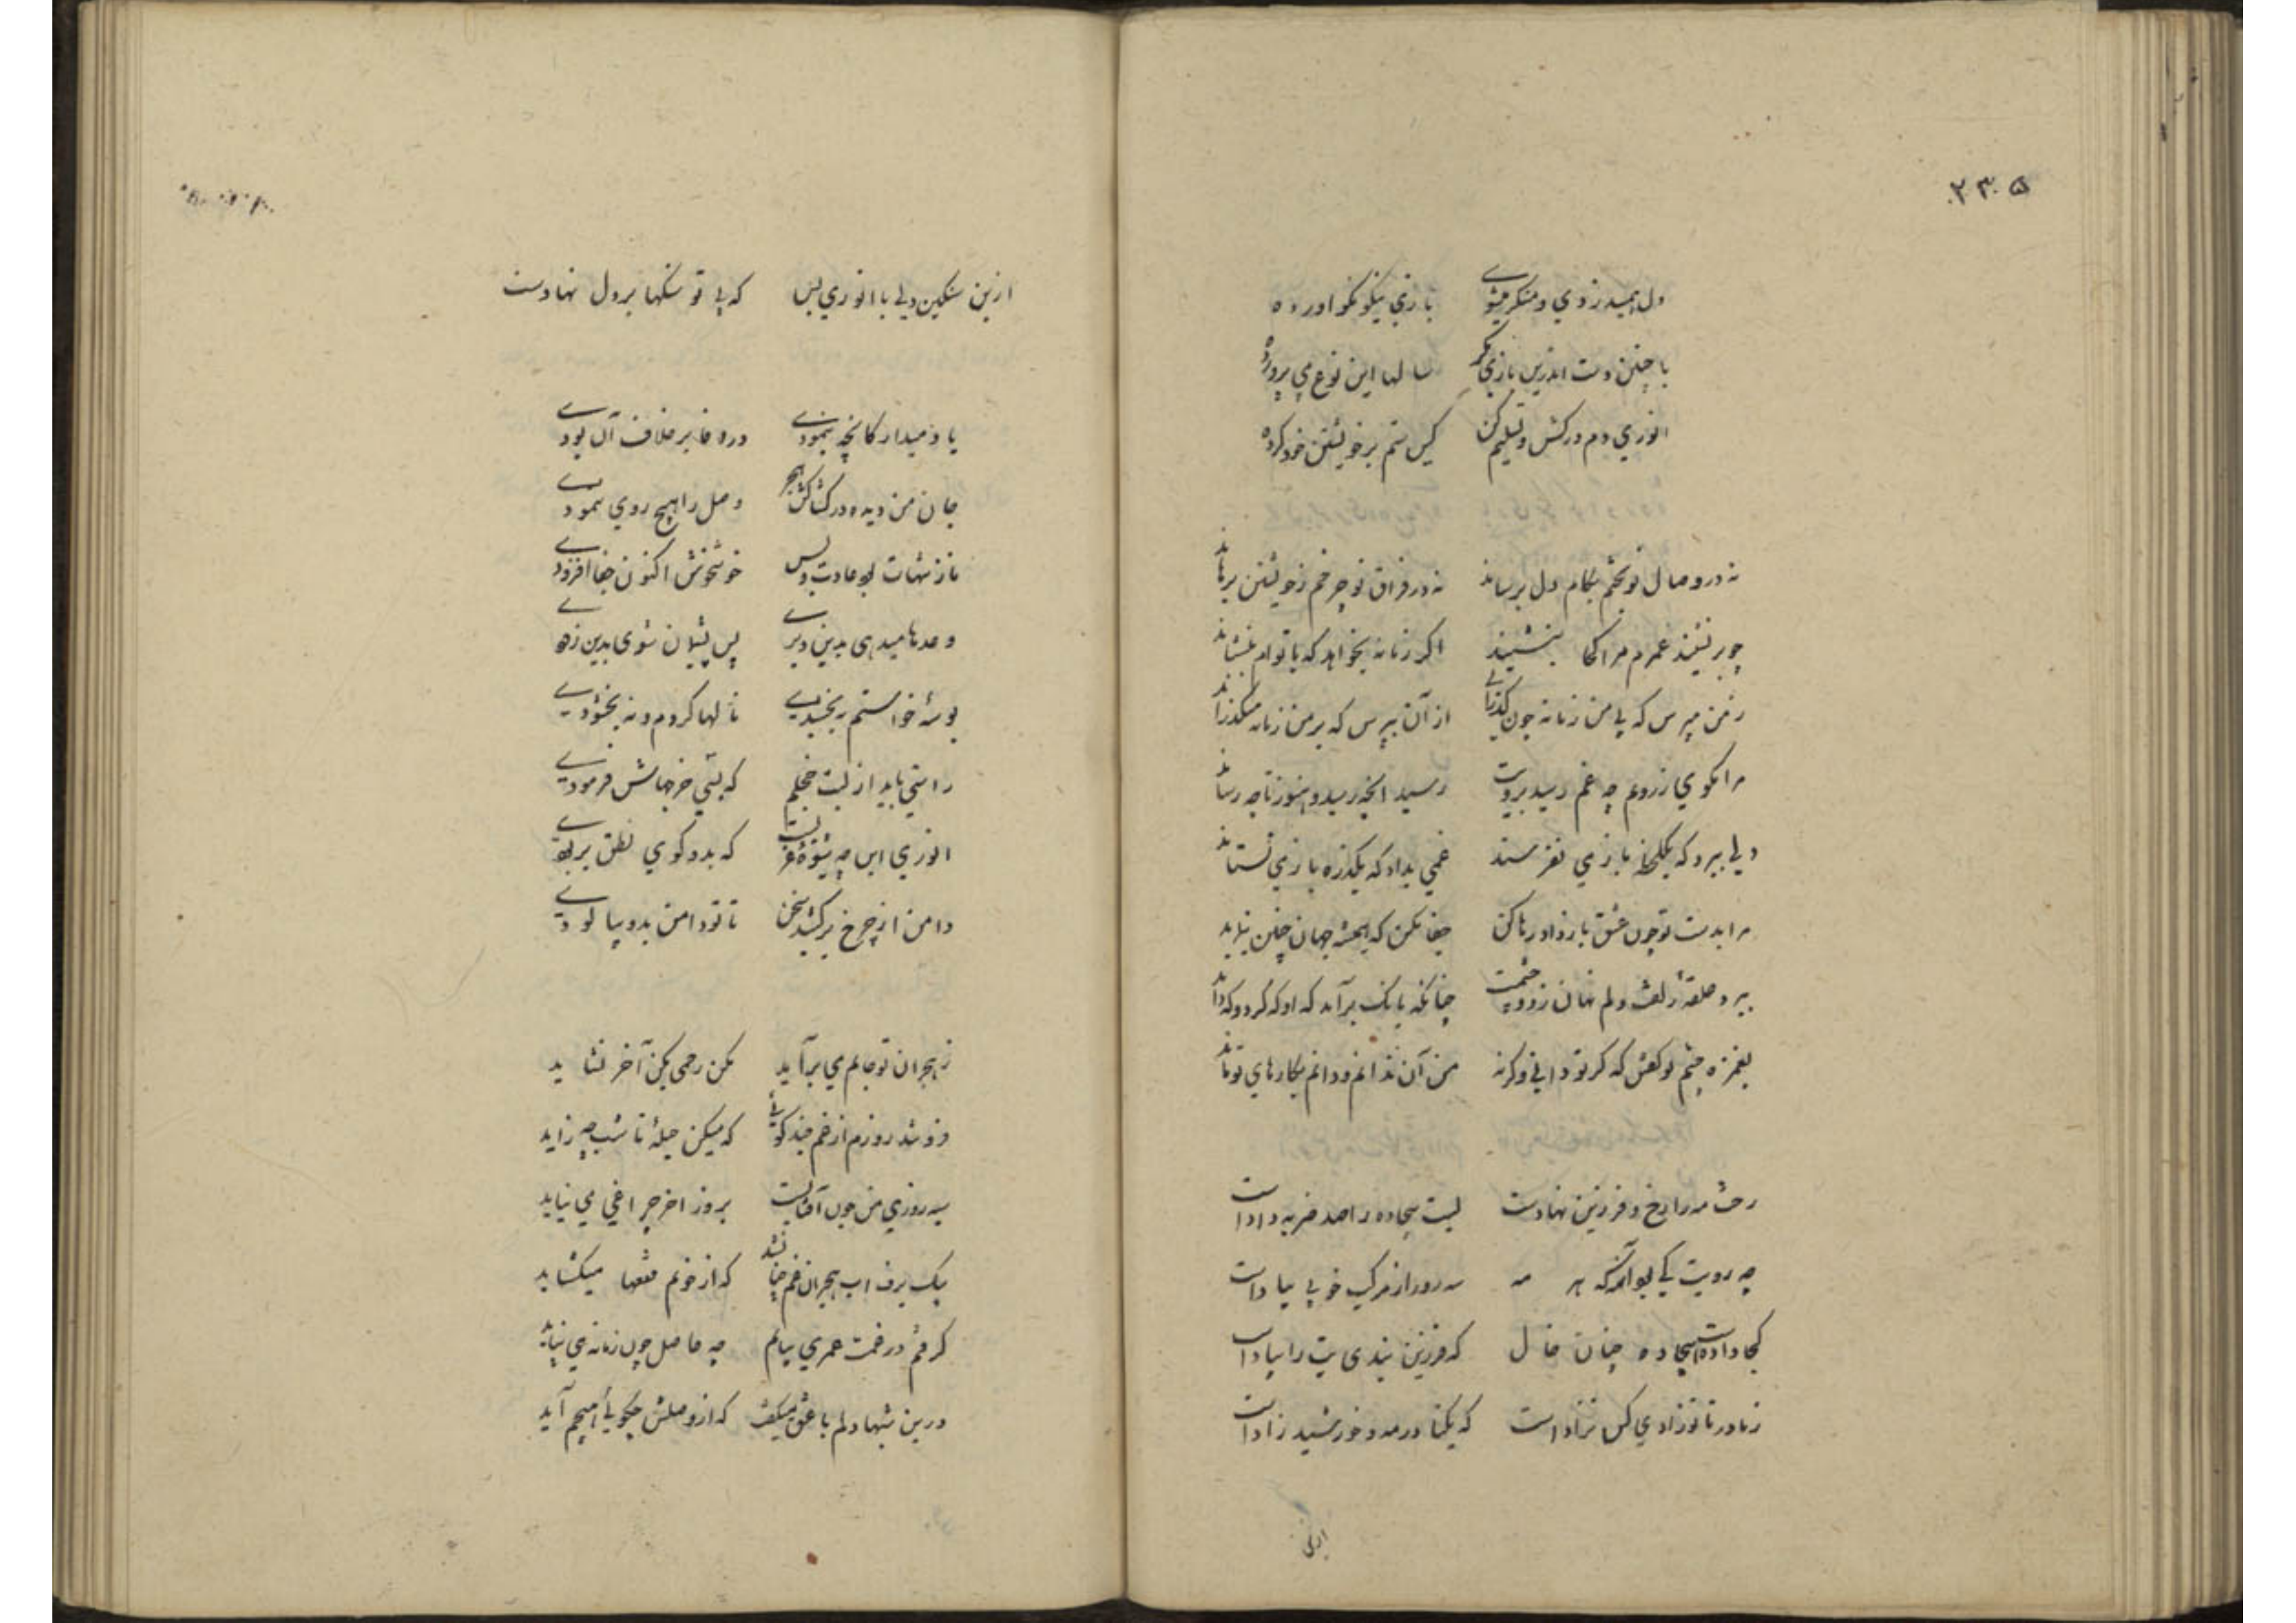 ۲۳۵
دل همیدزدی و منکر میشوی بازی نیکو نکو آورده
با چنین دست اندرین بازی مگر سالها این نوع می پرورده
انوری دم درکش و تسلیم کن کین ستم بر خویشتن خود کرده
نه در وصال تو بختم بکام دل برساند نه در فراق تو چرخم ز خویشتن برهاند
چو برنشیند عمرم مرا کجا بنشیند اگر زمانه بخواهد که با توام بنشاند
ز من مپرس که بی من زمانه چون گذرانی از آن بپرس که بر من زمانه میگذراند
مرا مگوی ز رویم چه غم رسید برویت رسید آنچه رسید و هنوز تا چه رساند
دلی ببرد که یکلحظه باز می نفرستد غمی بداد که یکذره باز می نستاند
مرا بدست تو چون عشق باز داد رها کن جفا مکن که همیشه جهان چنین بنماند
ببرد حلقه زلفت دلم نهان ز دو چشمت چنانکه بانگ برآمد که او که کرد و که داند
بغمزه چشم تو گفتش که گر تو دانی و گرنه من آن ندانم و دانم بکارهای تو ماند
رخت مه را رخ و فرزین نهادست لبت بیجاده را صد ضربه دادست
چه رویت کی بود آنگه که هر مه سه روز از مرکب خوبی پیادست
کجا دادست بیجاده چنان خال که فرزین بندی پیشت را پیادست
ز مادر تا تو زادی کس نزادست که یکتا در مه و خورشید زادست
ازین
ازین سنگین دلی با انوری بس که بی تو سنگها بر دل نهادست
یاد میدار کانچه بنمودی در وفا بر خلاف آن بودی
جان من دیده در کشاکش هجر وصل را هیچ روی ننمودی
ناز تنهات بود عادت و بس خوشخوش اکنون جفا افزودی
وعدها میدهی بدین دیری پس پشیمان شوی بدین زودی
بوسه خواستم نبخشیدی نالها کردم و نبخشودی
راستی باید از لبت خجلم که بسی خرجهاش فرمودی
انوری این چه شیوه غزلست که بدو گوی نطق بربودی
دامن از چرخ برکشید سخن تا تو دامن بدو بیالودی
ز هجران تو جانم می برآید مکن رحمی بکن آخر نشاید
فرو شد روزم از غم چند گوئی که میکن حیله تا شب چه زاید
سیه روزی من چون آفتابست بروز آخر چراغی می نیاید
بیک برف آب هجران غم چنان شد که از خونم فقعها میگشاید
گرفتم در غمت عمری بیایم چه حاصل چون زمانه می نپاید
درین شبها دلم با عشق میگفت که از وصلش چگوئی هیچم آید